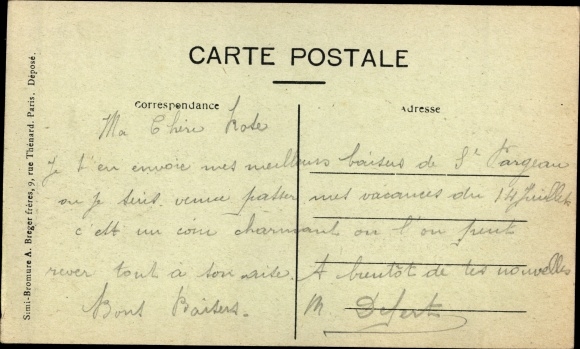 CARTE POSTALE
Correspondance
Adresse
Ma Chère Rose
Je t'en envoie mes meilleurs baisers de St Fargeau
ou je suis venue passer mes vacances du 14 Juillet
c'est un coin charmant ou l'on peut
rever tout à son aise. A bientôt de tes nouvelles
Bons Baisers.
M. Defert
Simi-Bromure A. Breger frères, 9, rue Thénard. Paris. Déposé.